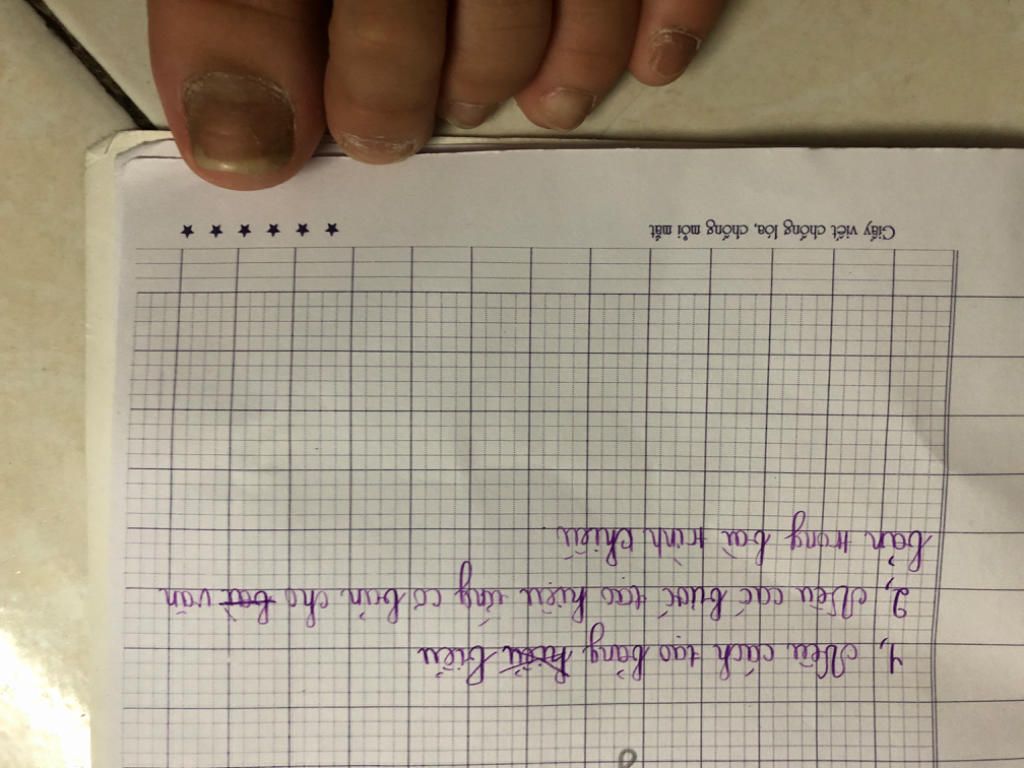 1, Nêu cách tạo bảng biểu
2, Nêu các bước tạo hiệu ứng cơ bản cho văn
bản trong bài trình chiếu
Giấy viết chống lóa, chống mỏi mắt